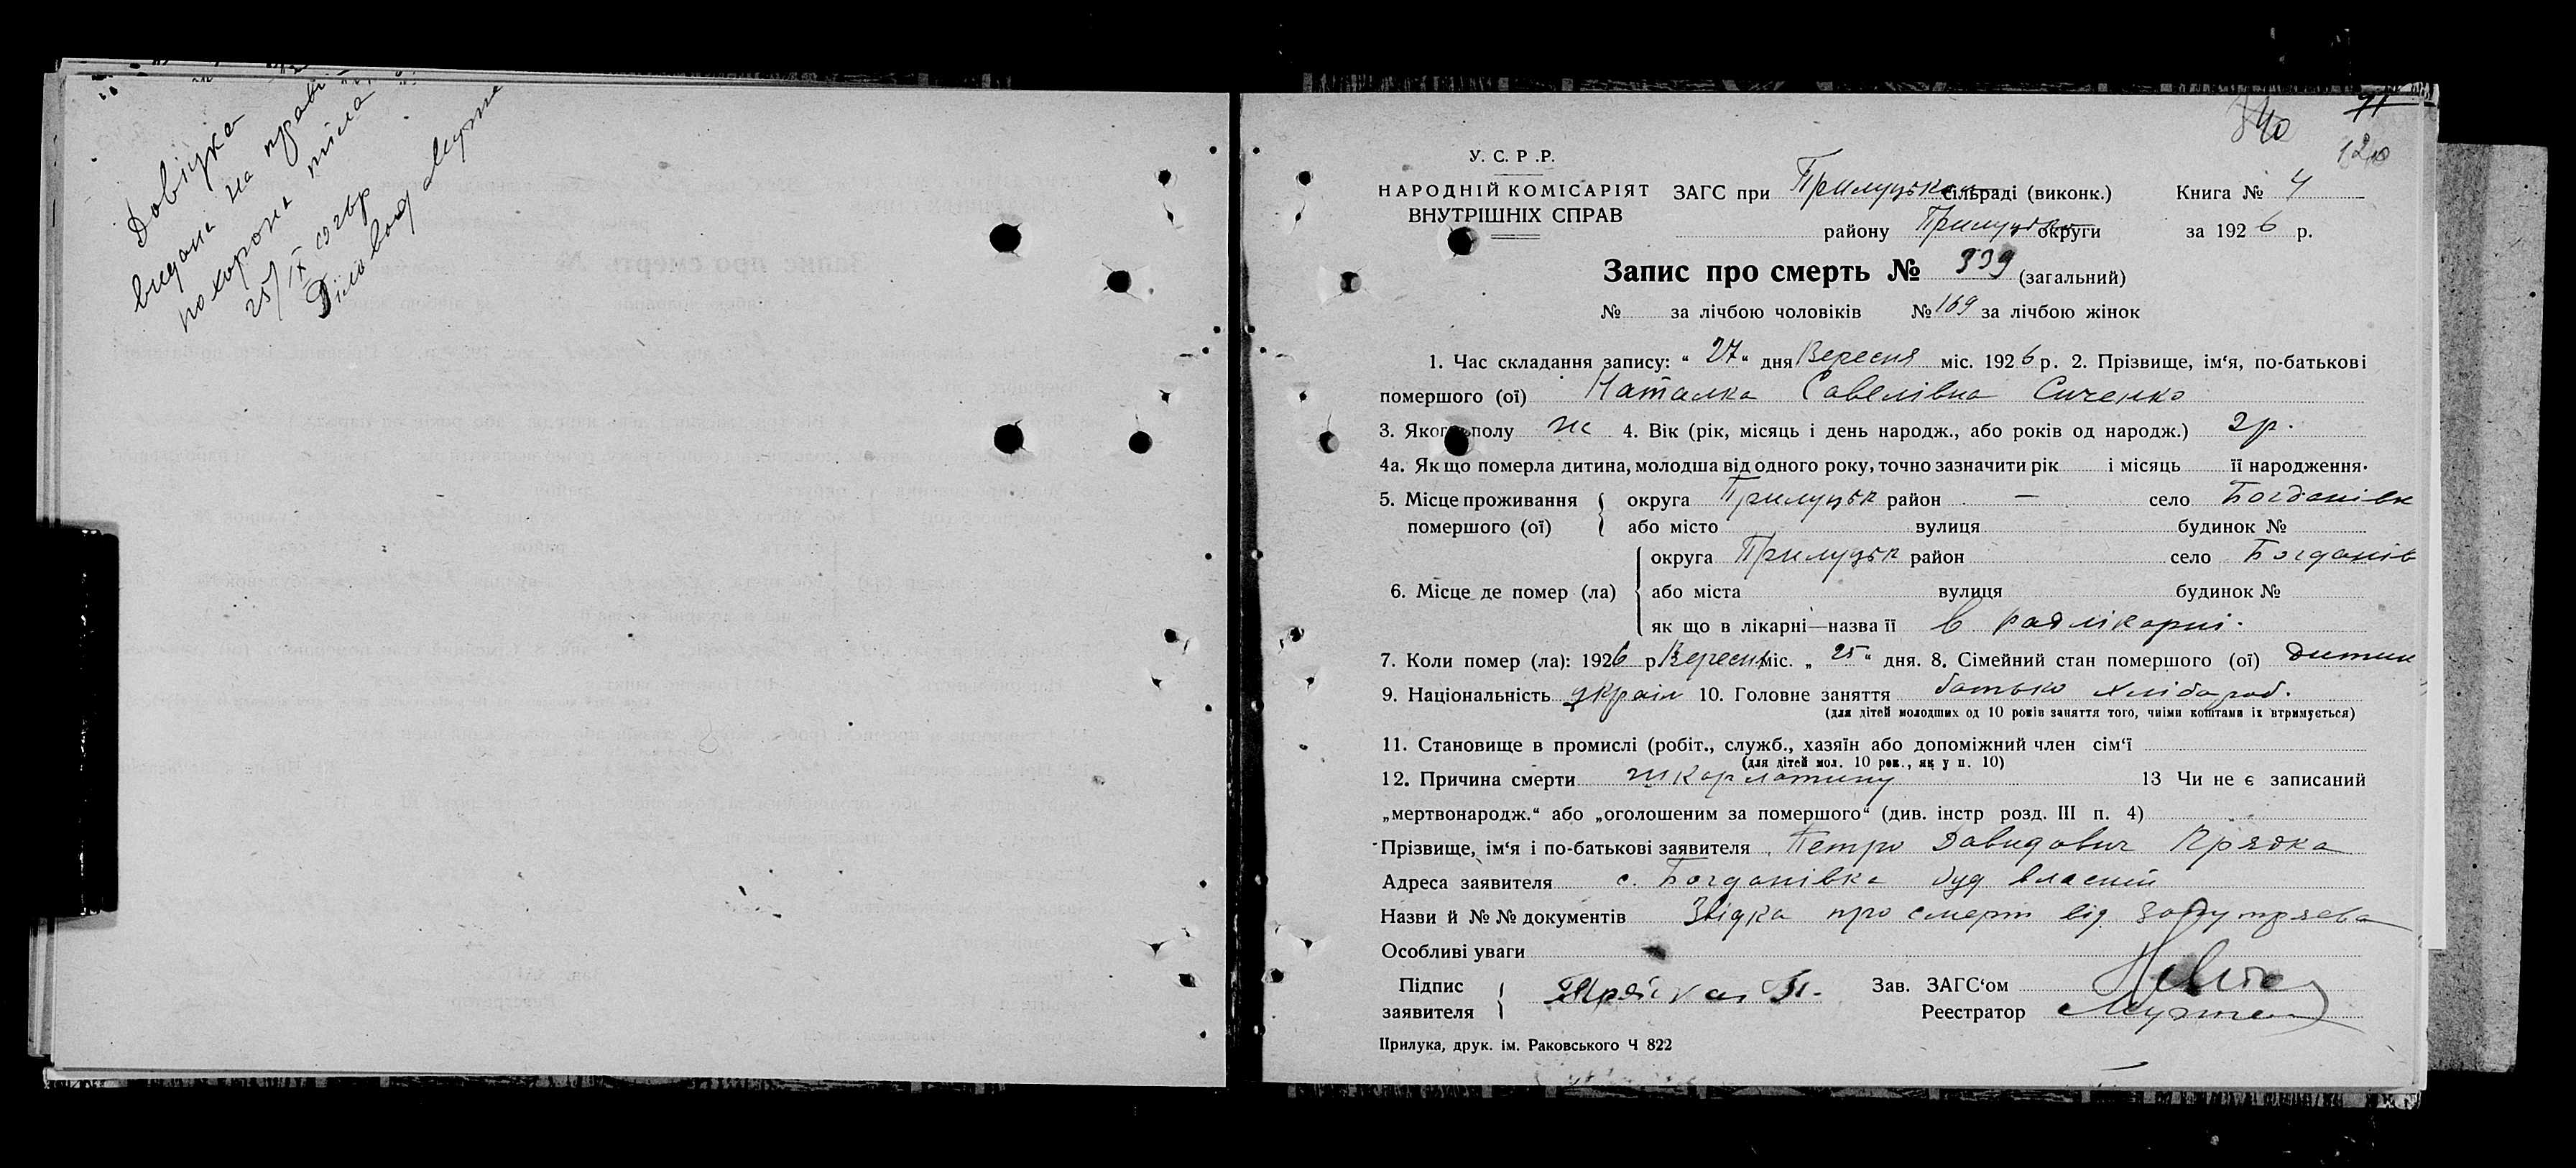 Довідка
видана на праві
похорона тіла
25/IX 1926р
Діловод
91
340
120
У. С. Р .Р.
НАРОДНІЙ КОМІСАРІЯТ
ВНУТРІШНІХ СПРАВ
ЗАГС при Прилуцьком сільраді (виконк.) Книга № 4
району Прилуцьк округи за 1926 р.
Запис про смерть № 339 (загальний)
№ за лічбою чоловіків № 169 за лічбою жінок
1. Час складання запису: „ 27 “ дня Вересня міс. 1926 р. 2. Прізвище, ім‘я, по-батькові
помершого (ої) Наталка Савелівна Сиченко
3. Якого полу ж 4. Вік (рік, місяць і день народж., або років од народж.) 2р.
4а. Як що померла дитина, молодша від одного року, точно зазначити рік і місяць її народження.
5. Місце проживання помершого (ої) { округа Прилуцьк район — село Богданівк
або місто вулиця будинок №
6. Місце де помер (ла) { округа Прилуцьк район село Богданів
або міста вулиця будинок №
як що в лікарні—назва її в радлікарні.
7. Коли помер (ла): 1926 р Вересня міс. „ 25 “ дня. 8. Сімейний стан помершого (ої) дитин
9. Національність україн 10. Головне заняття батько хлібороб.
(для дітей молодших од 10 років заняття того, чиїми коштами їх втримується)
11. Становище в промислі (робіт., служб., хазяїн або допоміжний член сім‘ї
(для дітей мол. 10 рок., як у п. 10)
12. Причина смерти шкарлатину 13 Чи не є записаний
„мертвонародж.“ або „оголошеним за помершого“ (див. інстр розд. III п. 4)
Прізвище, ім‘я і по-батькові заявителя Петро Давидович Прядка
Адреса заявителя с. Богданівка буд власний
Назви й № № документів Звідка про смерть від
Особливі уваги
Підпис заявителя { Прядка П.
Зав. ЗАГС‘ом
Реестратор
Прилука, друк. ім. Раковського Ч 822